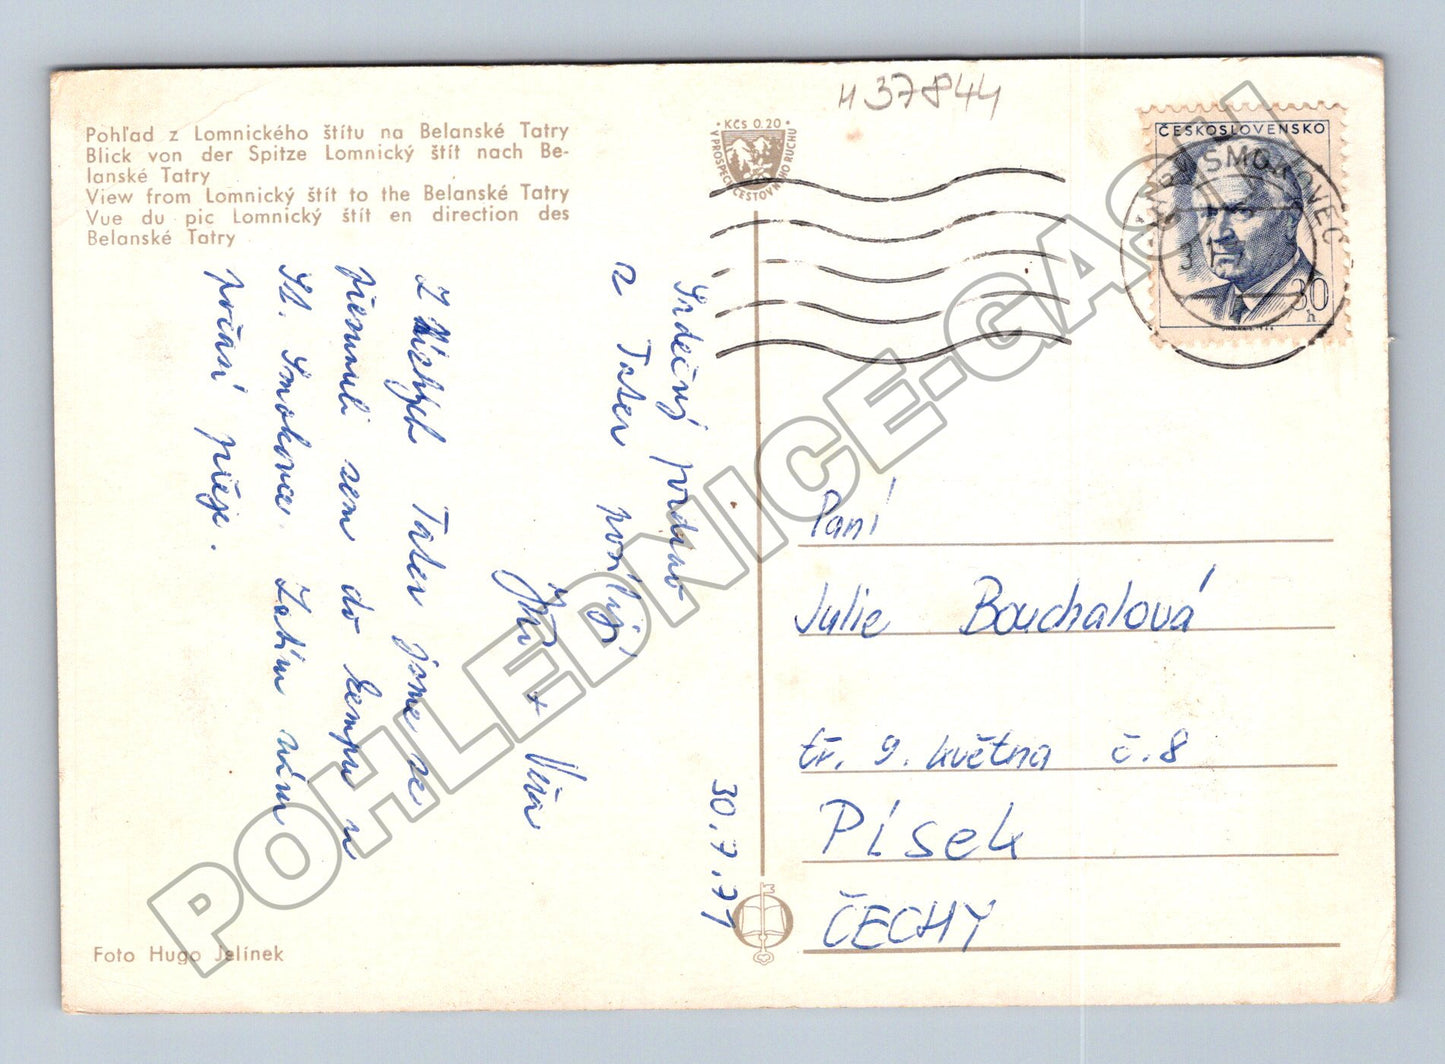 Pohľad z Lomnického štítu na Belanské Tatry
Blick von der Spitze Lomnický štít nach Be-
lanské Tatry
View from Lomnický štít to the Belanské Tatry
Vue du pic Lomnický štít en direction des
Belanské Tatry
KČS 0.20
V PROSPĚCH CESTOVNÍHO RUCHU
H 37844
ČESKOSLOVENSKO
30
h
SMOKOVEC
30.7.71
Srdečný pozdrav
z Tater posílají
Jiří + Věra
Z Nízkých Tater jsme se
přesunuli sem do kempu u
St. Smokovce. Zatím nám
počasí přeje.
Paní
Julie Bouchalová
tř. 9. května č. 8
Písek
ČECHY
Foto Hugo Jelínek
POHLEDNICE-GASH